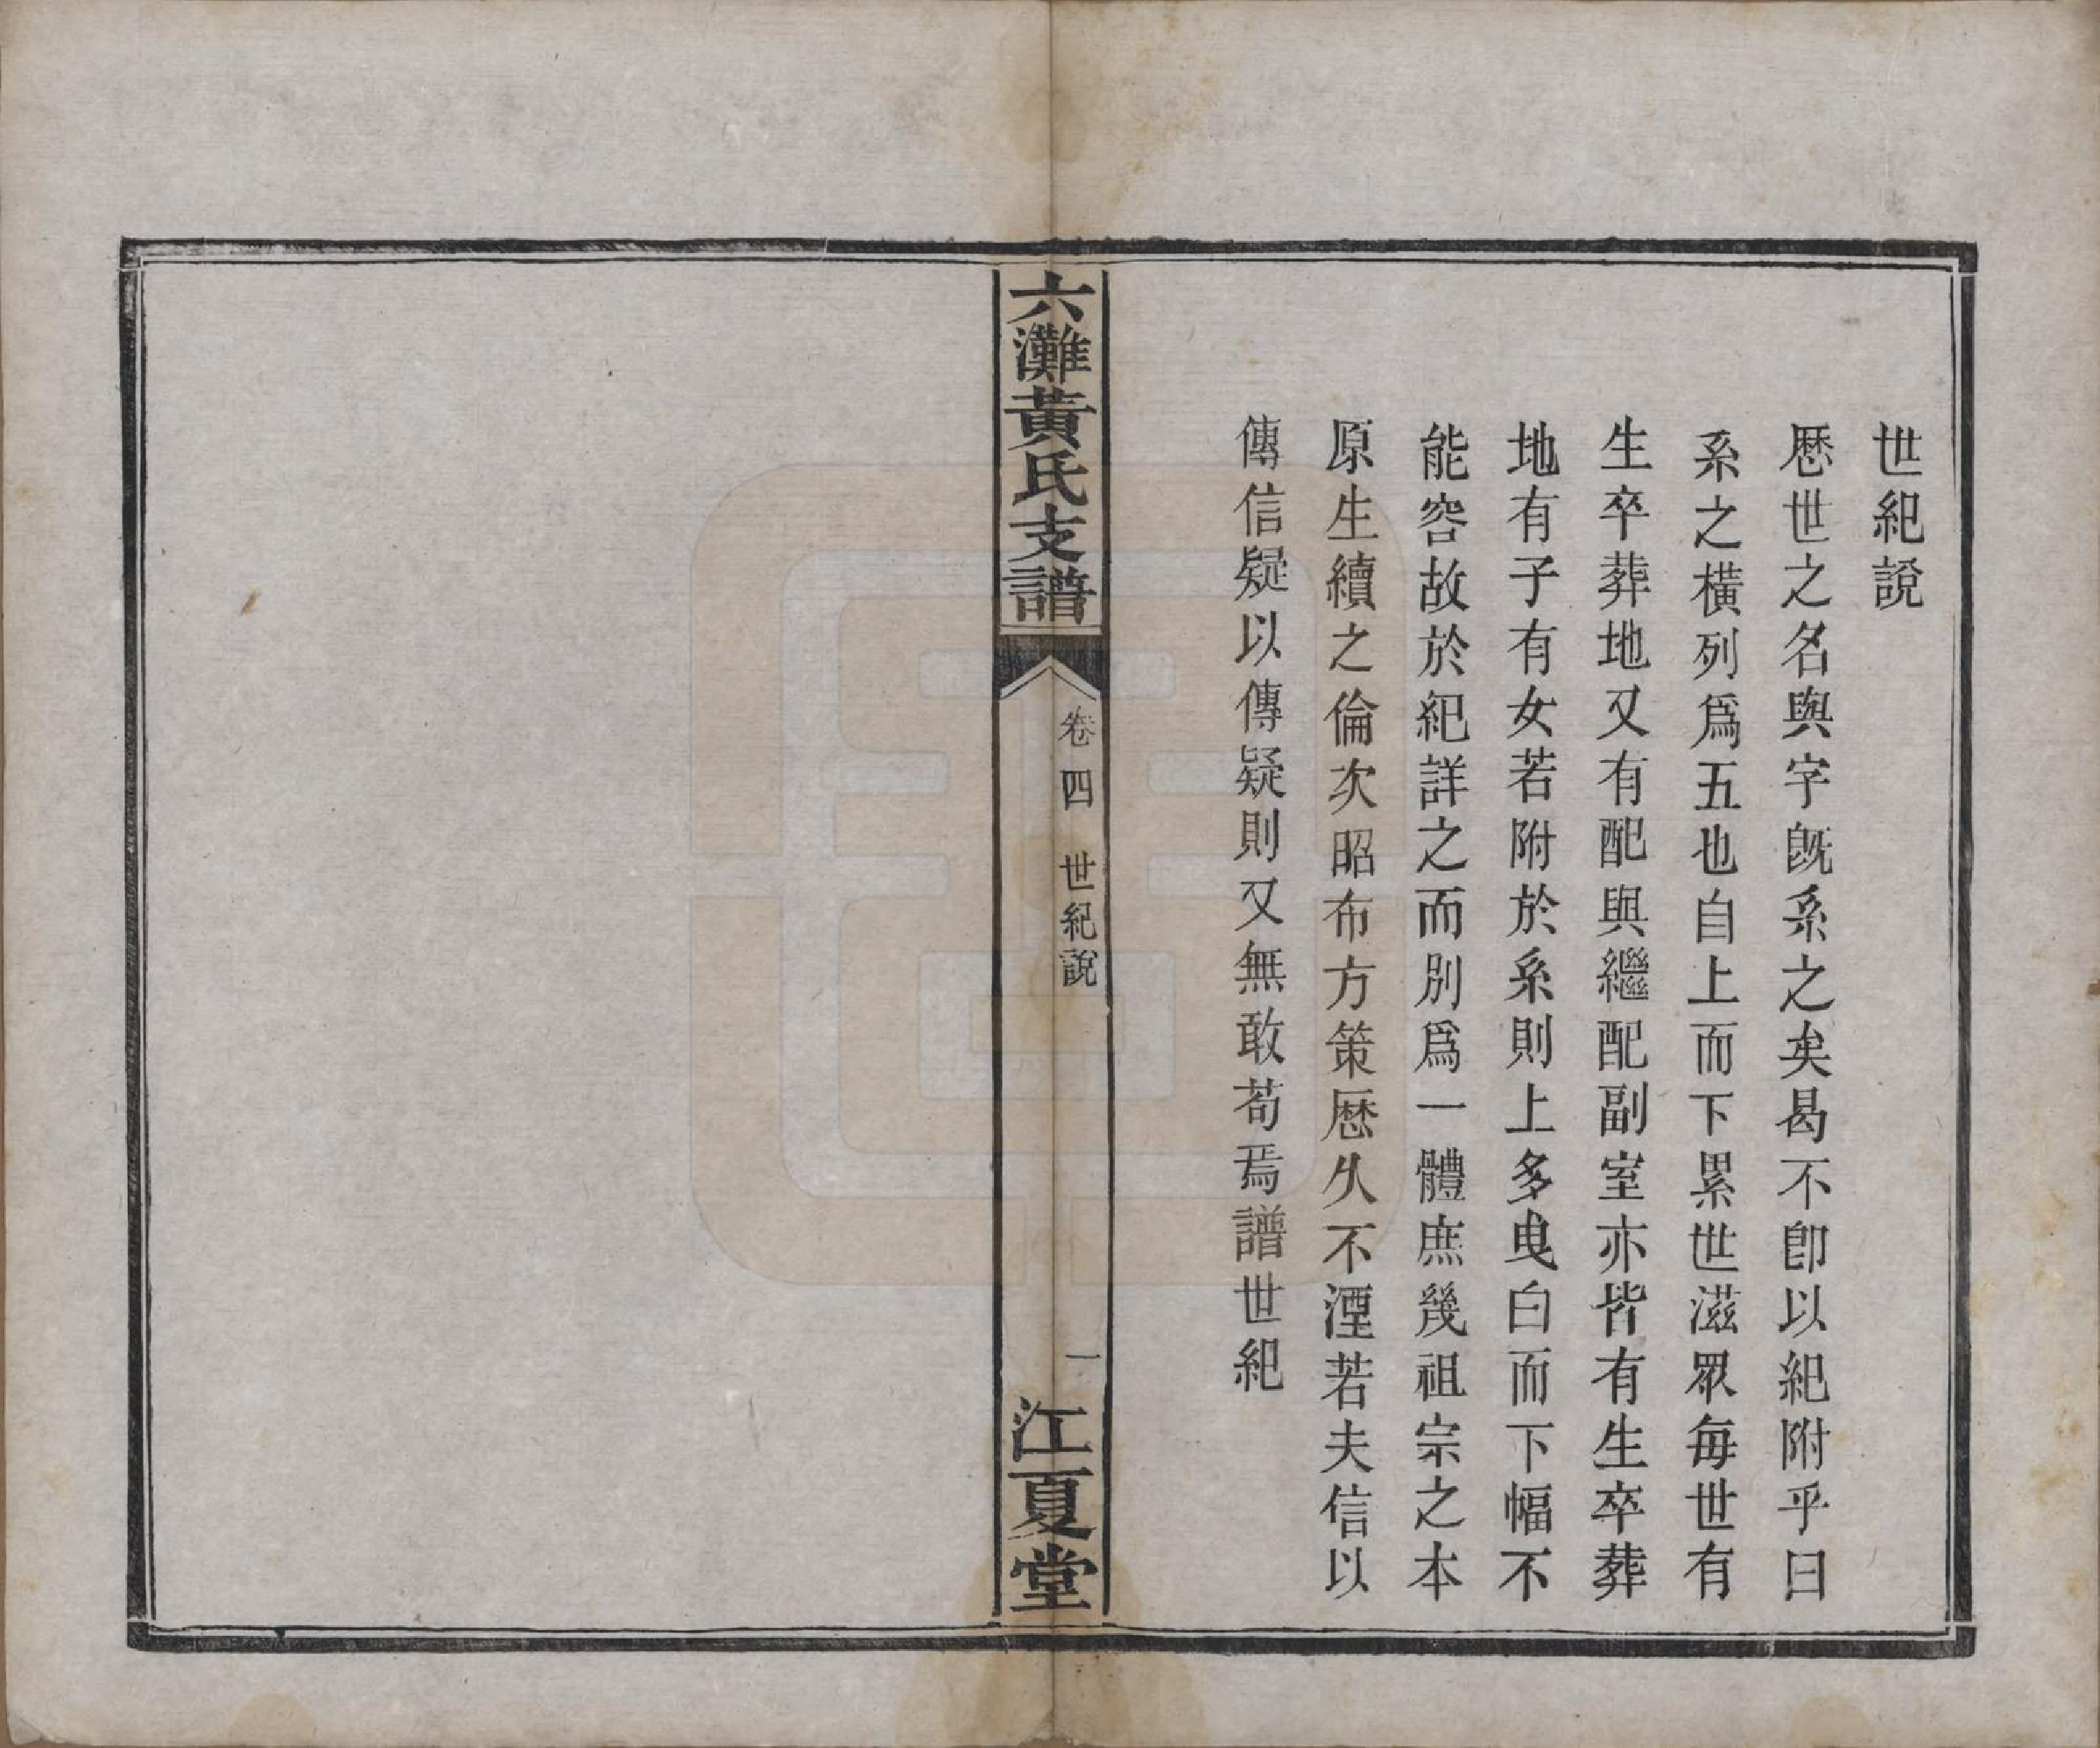 世紀說
厯世之名與字旣系之矣曷不卽以紀附乎曰
系之橫列爲五也自上而下累世滋眾每世有
生卒葬地又有配與繼配副室亦皆有生卒葬
地有子有女若附於系則上多曳白而下幅不
能容故於紀詳之而別爲一體庶幾祖宗之本
原生續之倫次昭布方策厯久不湮若夫信以
傳信疑以傳疑則又無敢苟焉譜世紀
六灘黃氏支譜
卷四 世紀說
一
江夏堂